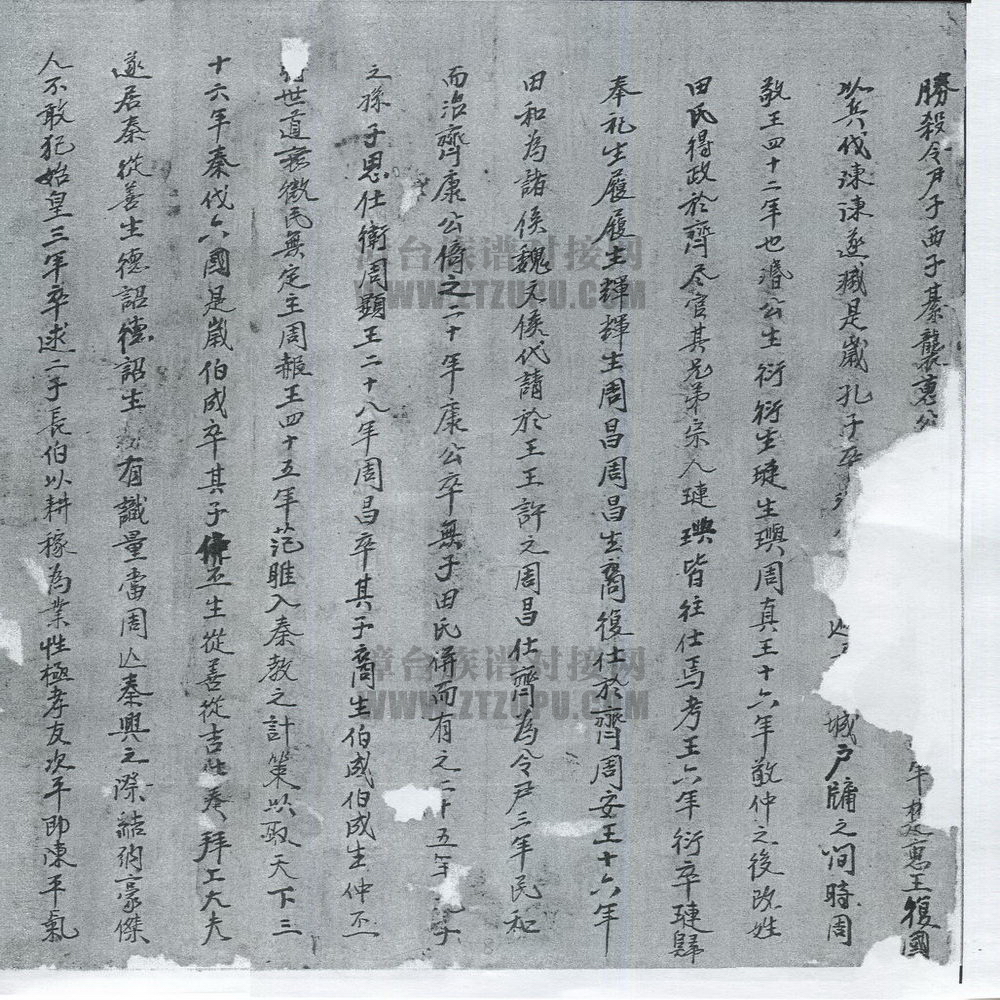 勝殺令尹子西子綦襲惠公 午 惠王復國
以兵伐陳陳遂滅是嵗孔子卒 城戶牖之间時周
敬王四十二年也湣公生衍衍生璉生璵周真王十六年敬仲之後改姓
田氏得政於齊尽官其兄弟宗人璉璵皆往仕焉考王六年衍卒璉歸
奉礼生履履生輝輝生周昌周昌生裔復仕於齊周安王十六年
田和為諸侯魏文侯代請於王王許之周昌仕齊為令尹三年民和
而治齊康公偹之二十年康公卒無子田氏併而有之二十五年 子
之孫子思仕衛周顯王二十八年周昌卒其子裔生伯成伯成生仲丕
世道 微民無定主周報王四十五年范雎入秦教之計策以取天下三
十六年秦伐六國是嵗伯成卒其子 丕生從善從吉仕秦拜工大夫
遂居秦從善生德詔德詔生 有識量當周亾秦興之際結納豪傑
人不敢犯始皇三年卒逑二子長伯以耕稼為業性極孝友次平即陳平氣
漳台族谱对接网
WWW.ZTZUPU.COM
漳台族谱对接网
WWW.ZTZUPU.COM